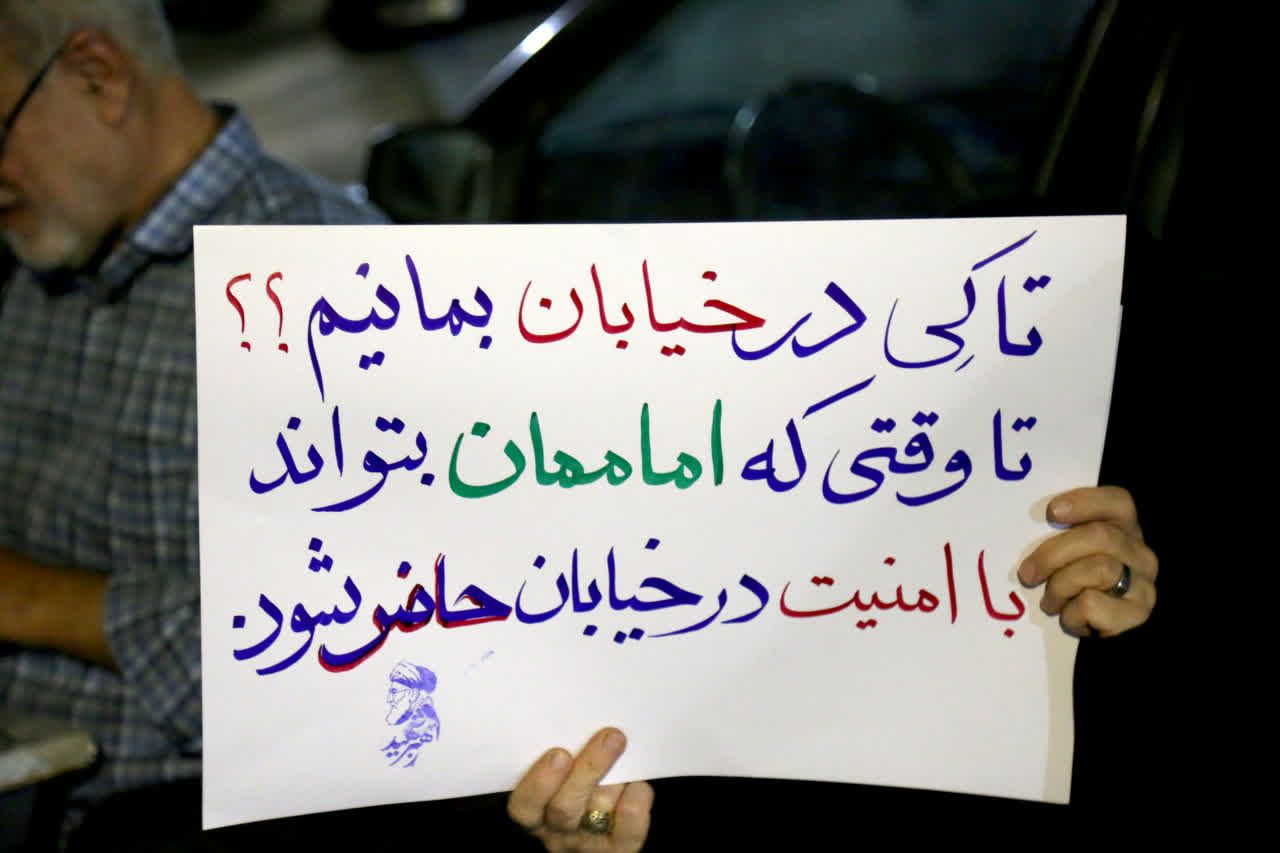 تا کِی در خیابان بمانیم؟؟
تا وقتی که اماممان بتواند
با امنیت در خیابان حاضر بشود
رهبر شهید